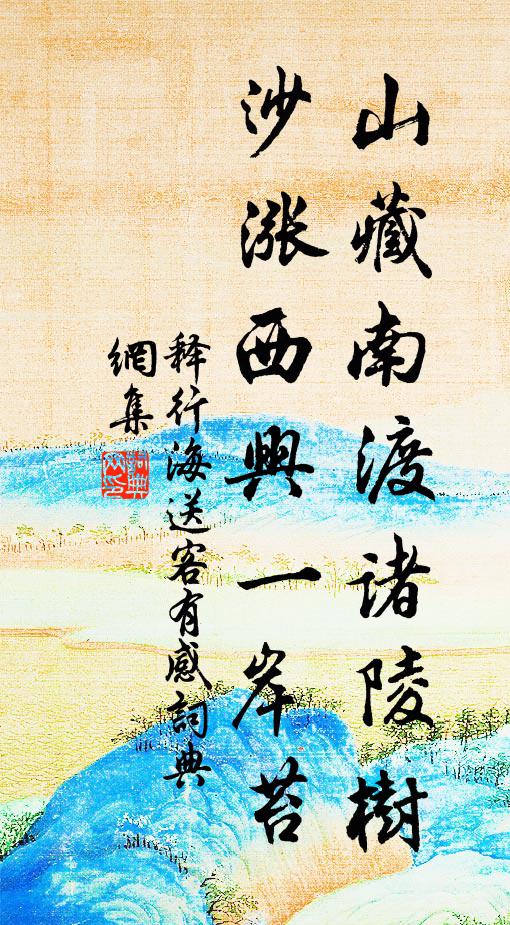 山藏南渡诸陵樹
沙漲西興一岸苔
释行海送客有感詞典
網集